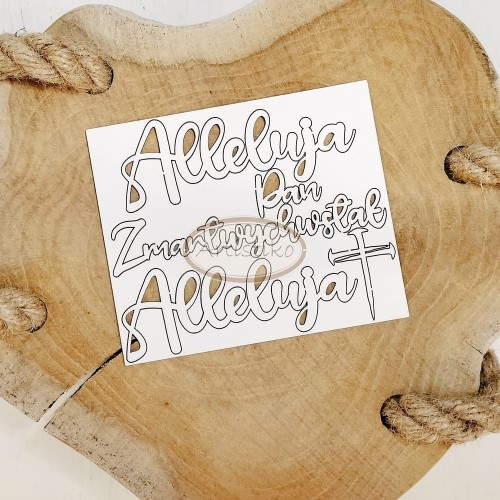 Alleluja
Pan
Zmartwychwstał
Alleluja